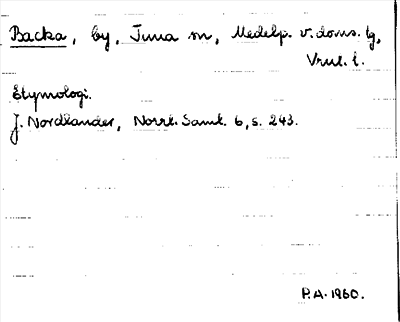 Backa, by, Tuna sn, Medelp. v. doms. tg,
Vrml. l.
Etymologi.
J. Nordlander, Norrl. Saml. 6, s. 243.
P.A. 1960.